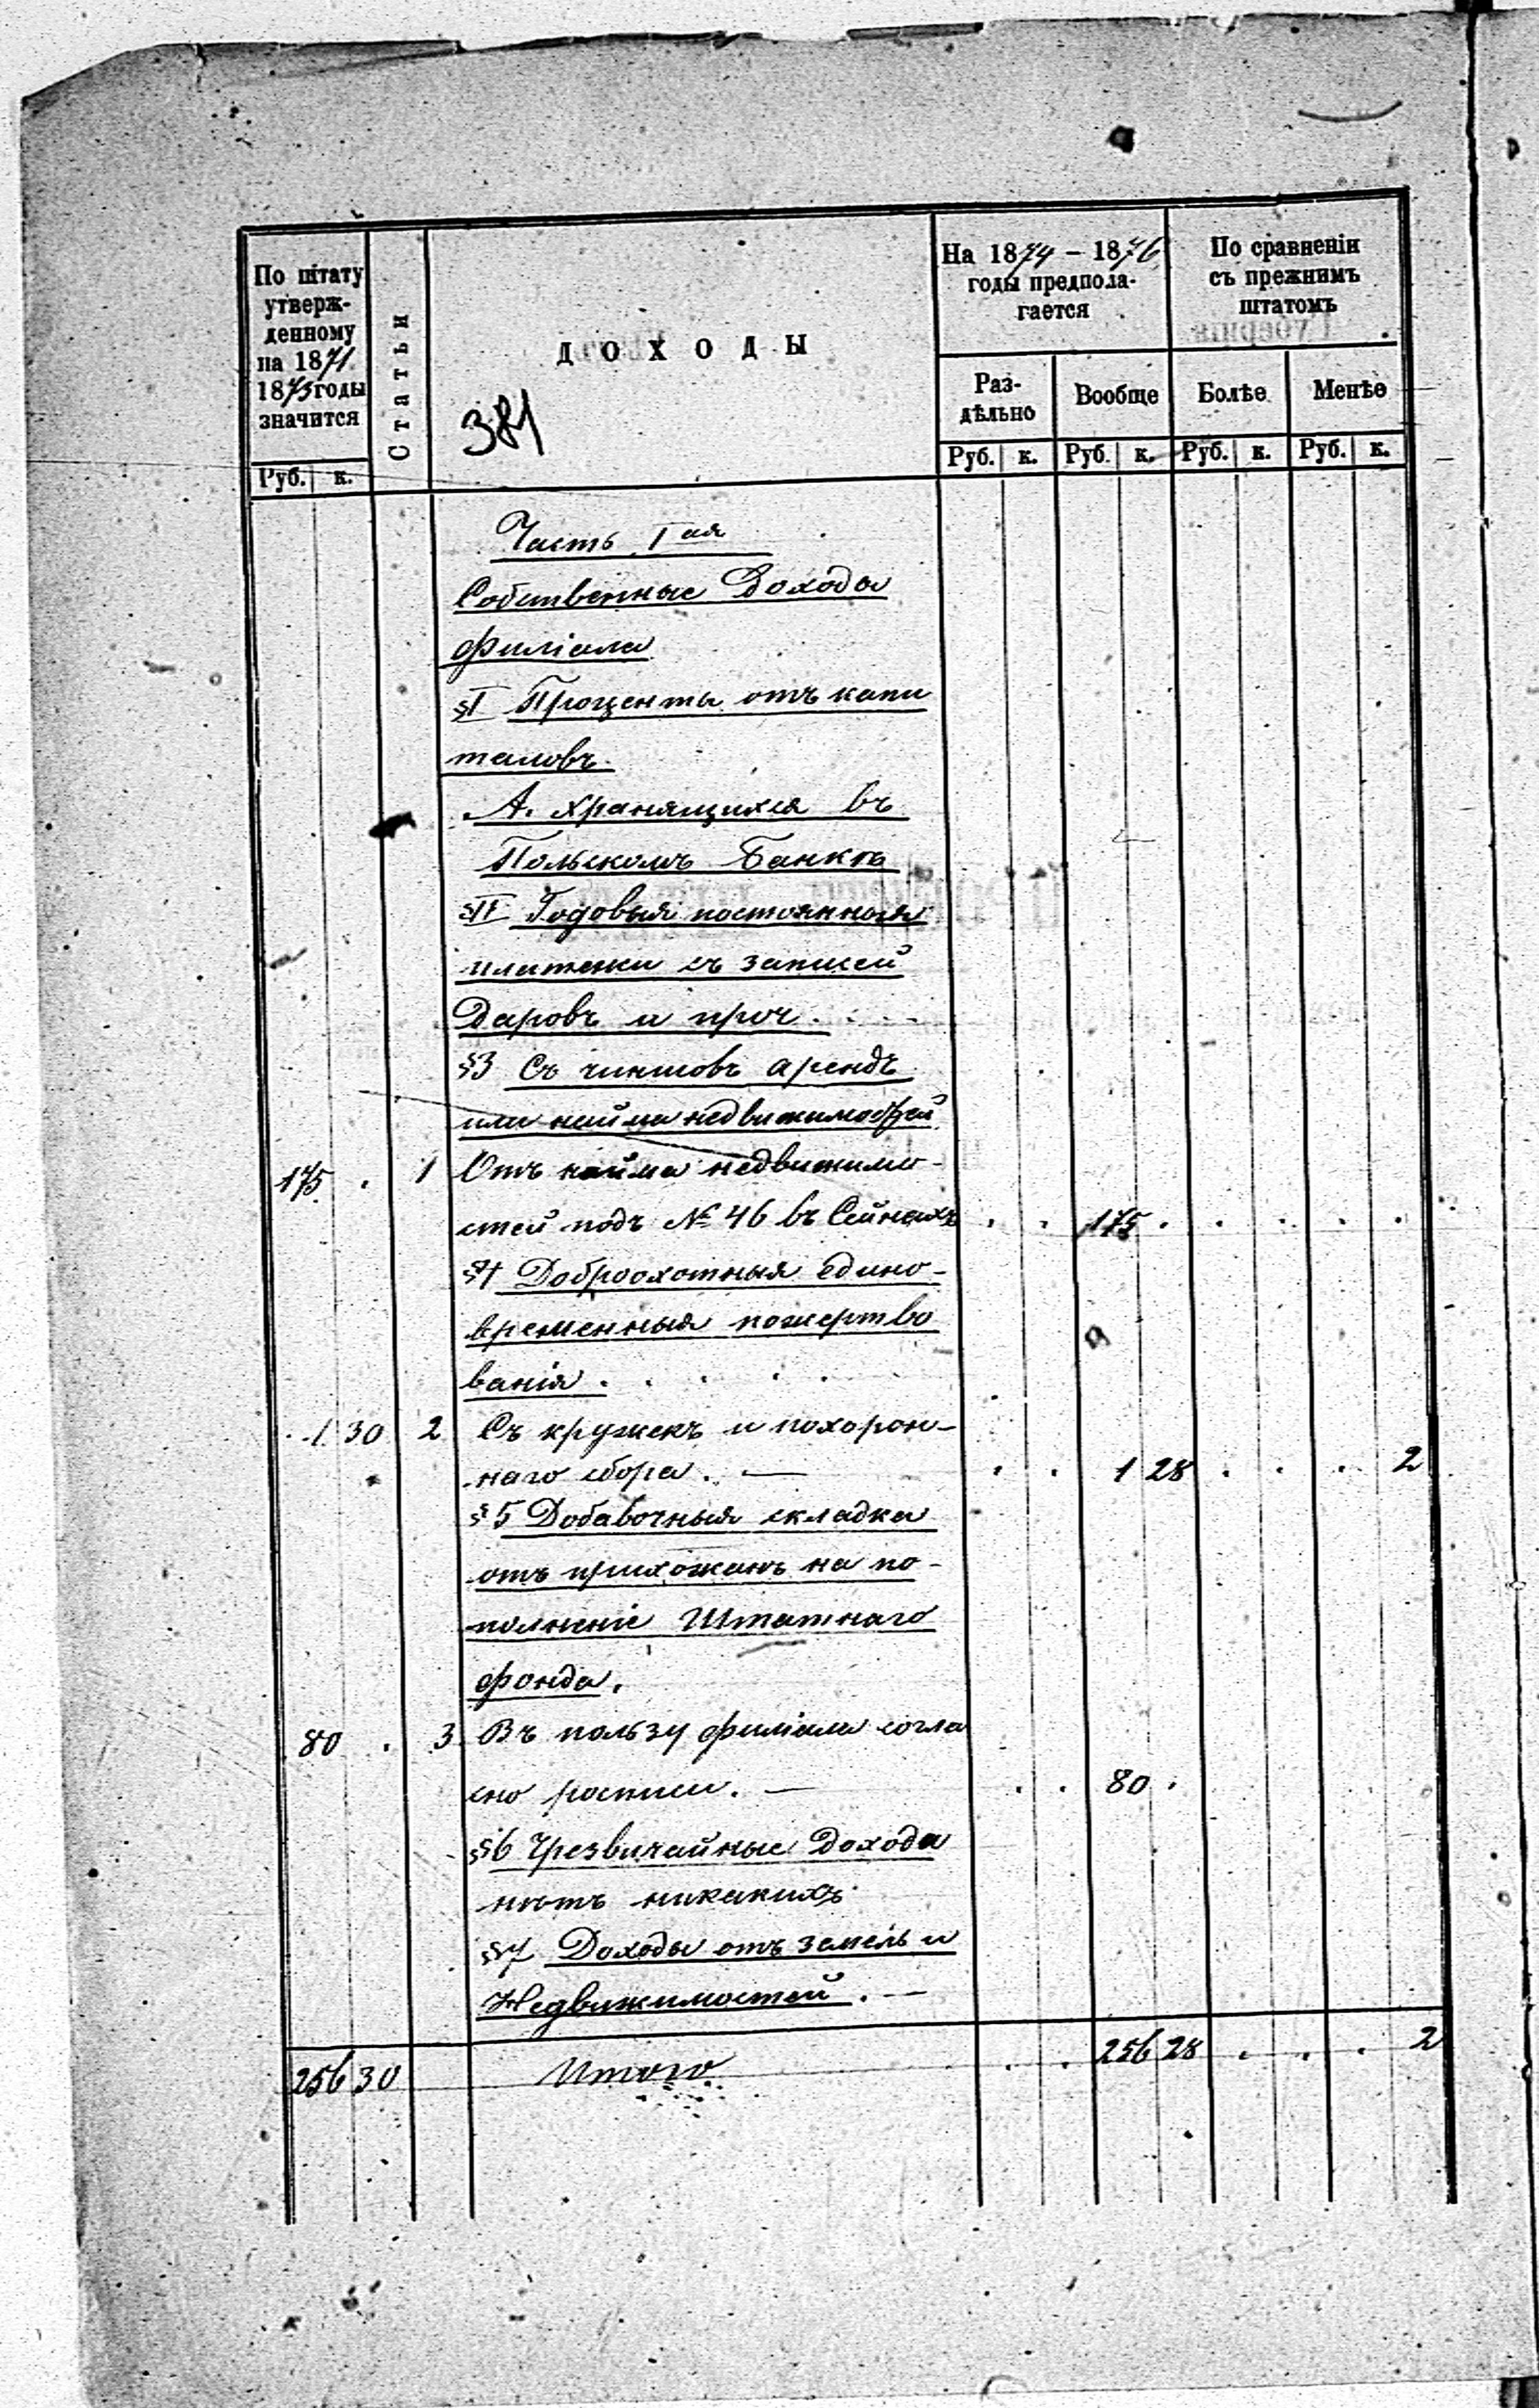 По штату
утверж-
денному
на 1871
1873 годы
значится
Руб. к.
Статьи
ДОХОДЫ
381
На 1874 – 1876
годы предпола-
гается
Раз-
дѣльно
Руб. к.
Вообще
Руб. к.
По сравненіи
съ прежнимъ
штатомъ
Болѣе
Руб. к.
Менѣе
Руб. к.
Часть Iая
Собственные Доходы
филіала
§I Проценты отъ капи
таловъ.
А. хранящихся въ
Польскомъ Банкѣ
§II Годовыя постоянныя
платежи съ записей
Даровъ и проч. . . .
§3 Съ чиншовъ арендъ
или найма недвижимостей
175 . 1 Отъ найма недвижимо-
стей подъ № 46 въ Сейнахъ . . 175 . . . . .
§4 Доброохотныя едино-
временныя пожертво
ванія . . . . .
1 30 2 Съ кружекъ и похорон-
наго сбора. — . . 1 28 . . . 2
§5 Добавочныя складка
отъ прихожанъ на по-
полненіе Штатнаго
фонда.
80 . 3 Въ пользу филіала согла
сно росписи. — . . 80 .
§6 Чрезвычайные Доходы
нѣтъ никакихъ
§7 Доходы отъ земель и
Недвижимостей. —
256 30 Итого . . 256 28 . . . 2